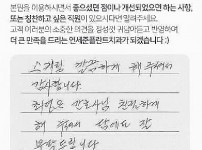 본원을 이용하시면서 좋으셨던 점이나 개선되었으면 하는 사항,
또는 칭찬하고 싶은 직원이 있으시다면 말해주세요.
고객 여러분의 소중한 의견을 정성껏 귀담아듣고 반영하여
더 큰 만족을 드리는 연세준플란트치과가 되겠습니다 :)
스케일링 깔끔하게 해 주셔서
감사합니다
간호사님 친절하게
해 주셔서 앞에도 잘
부탁드립니다